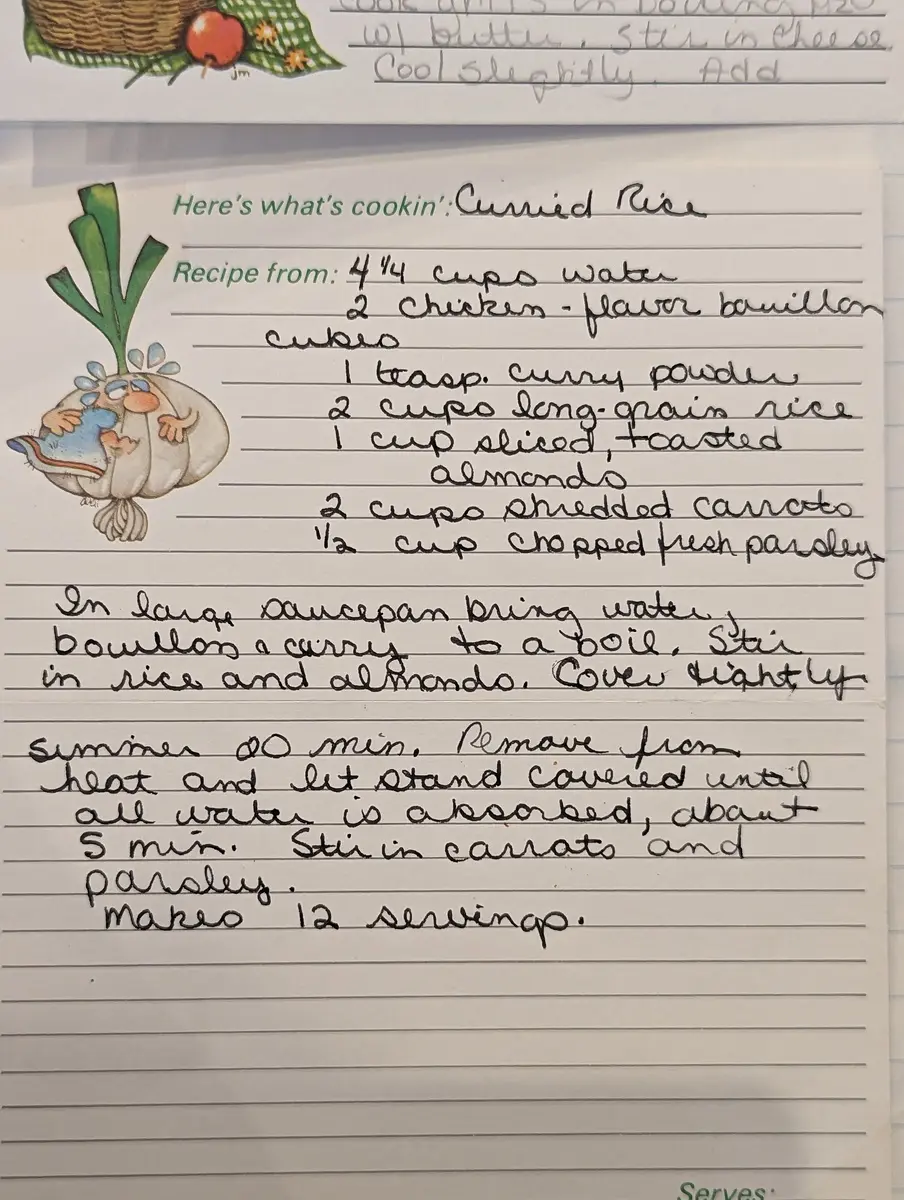 w/ butter. Stir in cheese.
Cool slightly. Add
jm
Here's what's cookin': Curried Rice
Recipe from: 4 1/4 cups water
2 chicken-flavor bouillon
cubes
1 teasp. curry powder
2 cups long-grain rice
1 cup sliced, toasted
almonds
2 cups shredded carrots
1/2 cup chopped fresh parsley
In large saucepan bring water,
bouillon & curry to a boil. Stir
in rice and almonds. Cover tightly
simmer 20 min. Remove from
heat and let stand covered until
all water is absorbed, about
5 min. Stir in carrots and
parsley.
Makes 12 servings.
Serves: